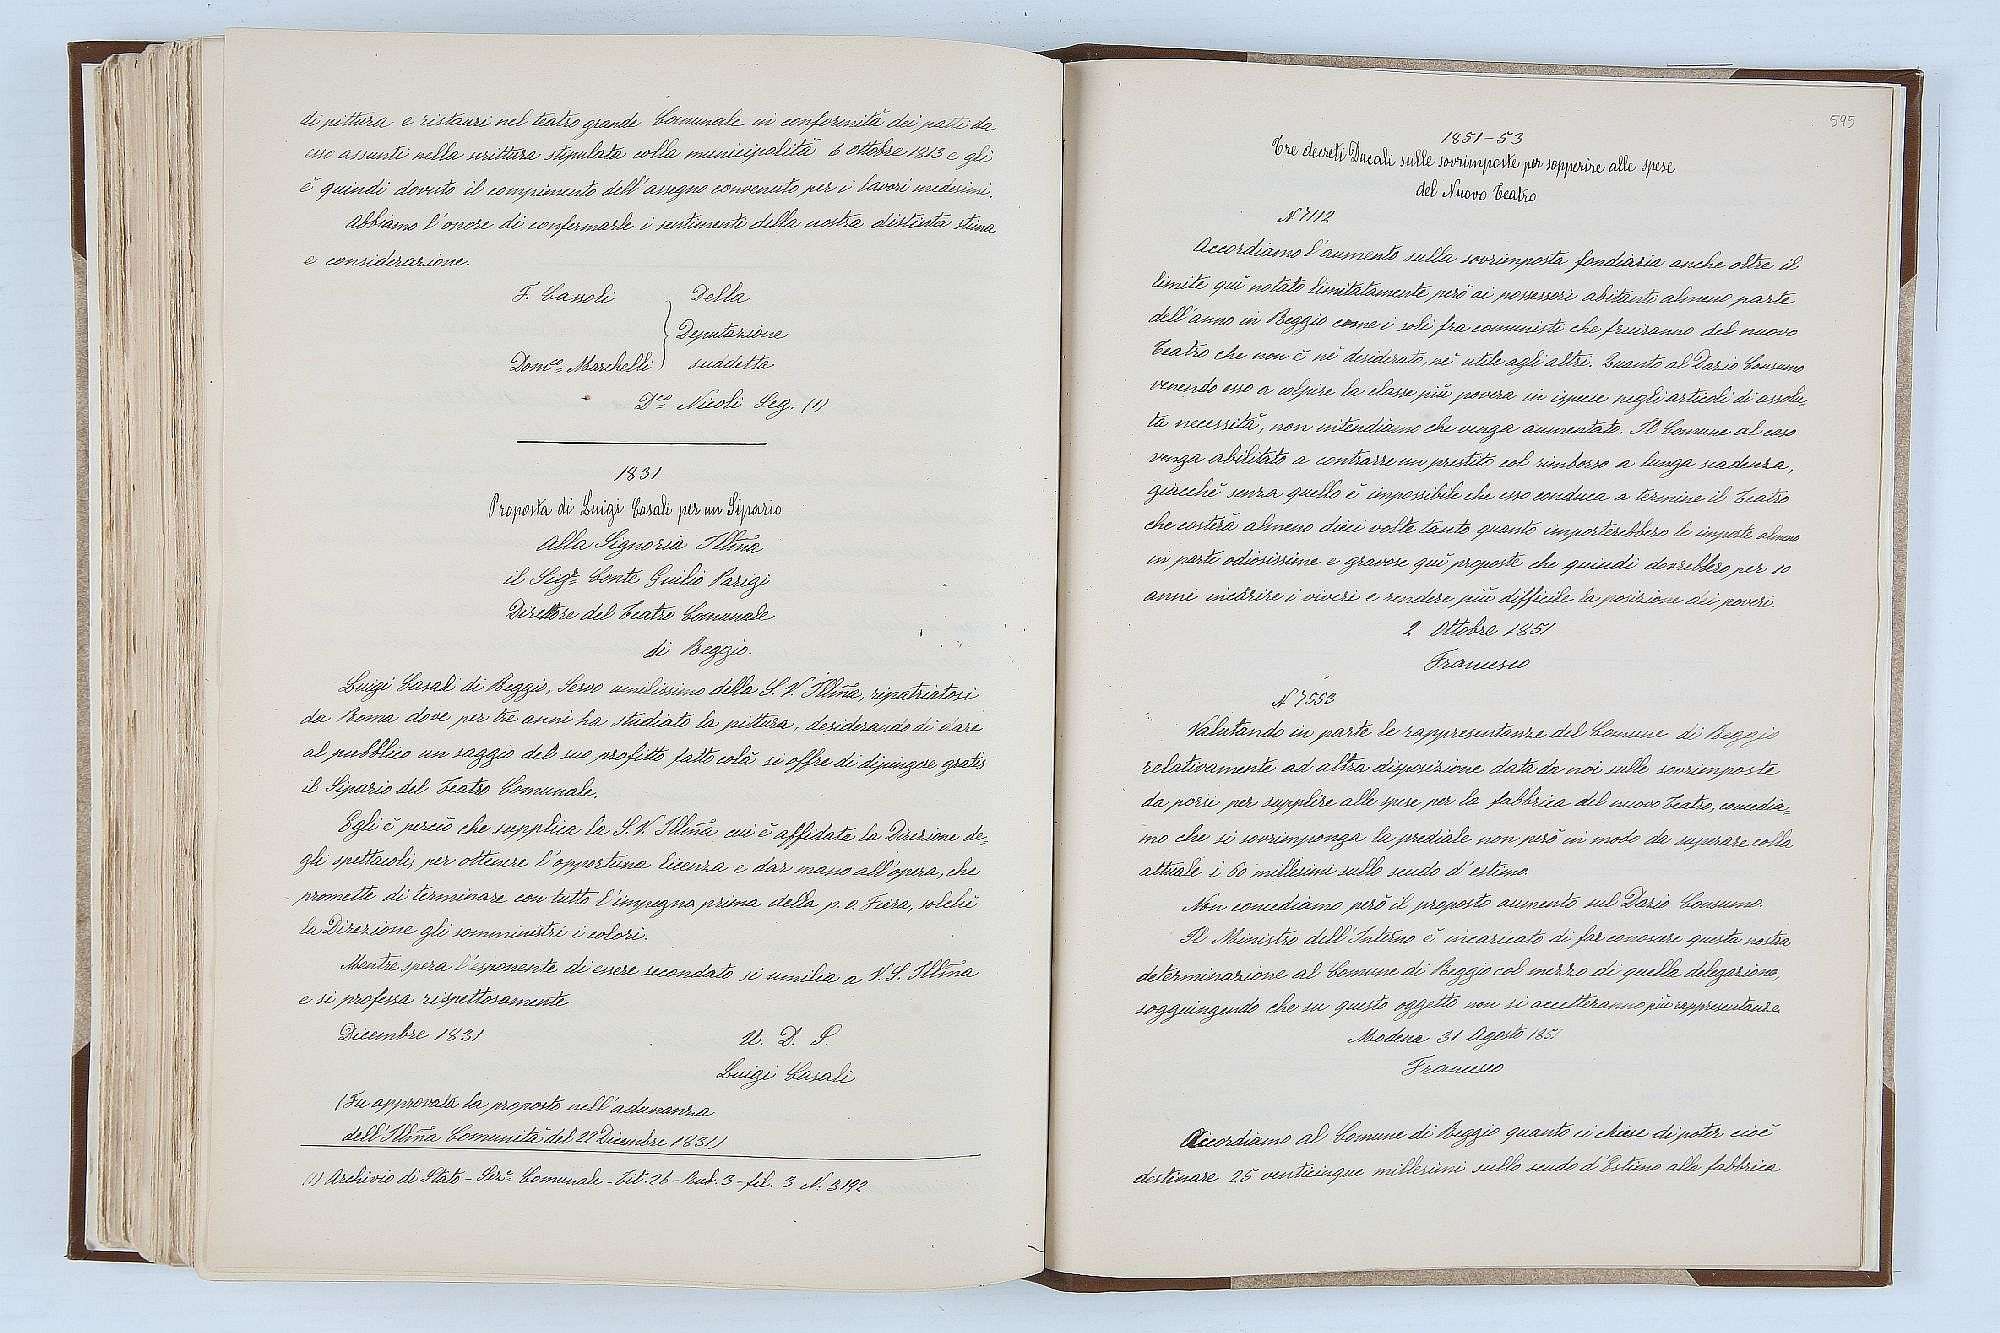 di pittura e ristauri nel teatro grande Comunale in conformità dei patti da
esso assunti nella scrittura stipulata colla municipalità 6 ottobre 1813 e gli
è quindi dovuto il compimento dell'assegno convenuto per i lavori medesimi.
Abbiamo l'onore di confermarle i sentimenti della nostra distinta stima
e considerazione.
F. Cassoli } Della
Deputazione
Domco. Marchelli suddetta
Dco. Nicoli Seg. (1)
1831
Proposta di Luigi Casali per un Sipario
Alla Signoria Illma
il Sigr. Conte Giulio Parigi
Direttore del Teatro Comunale
di Reggio.
Luigi Casali di Reggio, Servo umilissimo della S. V. Illma, ripatriatosi
da Roma dove per tre anni ha studiato la pittura, desiderando di dare
al pubblico un saggio del suo profitto fatto colà si offre di dipingere gratis
il Sipario del Teatro Comunale.
Egli è perciò che supplica la S. V. Illma cui è affidata la Direzione de-
gli spettacoli, per ottenere l'opportuna licenza e dar mano all'opera, che
promette di terminare con tutto l'impegno prima della p. v. Fiera, solchè
la Direzione gli somministri i colori.
Mentre spera l'esponente di essere secondato si umilia a V. S. Illma
e si professa rispettosamente
Dicembre 1831 U. D. S.
Luigi Casali
(Fu approvata la proposta nell'adunanza
dell'Illma Comunità del 21 Dicembre 1831)
(1) Archivio di Stato - Seze. Comunale - Tit. 26 - Rub. 3 - fil. 3 N. 3192
595
1851-53
Tre decreti Ducali sulle sovrimposte per sopperire alle spese
del Nuovo Teatro
N 7112
Accordiamo l'aumento sulla sovrimposta fondiaria anche oltre il
limite quì notato limitatamente però ai possessori abitanti almeno parte
dell'anno in Reggio come i soli fra comunisti che fruiranno del nuovo
Teatro che non è nè desiderato, nè utile agli altri. Quanto al Dazio Consumo
venendo esso a colpire la classe più povera in ispecie negli articoli di assolu-
ta necessità, non intendiamo che venga aumentato. Il Comune al caso
venga abilitato a contrarre un prestito col rimborso a lunga scadenza,
giacchè senza quello è impossibile che esso conduca a termine il Teatro
che costerà almeno dieci volte tanto quanto importerebbero le imposte almeno
in parte odiosissime e gravose quì proposte che quindi dovrebbero per 10
anni incarire i viveri e rendere più difficile la posizione dei poveri.
2 Ottobre 1851
Francesco
N 7553
Valutando in parte le rappresentanze del Comune di Reggio
relativamente ad altra disposizione data da noi sulle sovrimposte
da porsi per supplire alle spese per la fabbrica del nuovo Teatro, concedia-
mo che si sovrimponga la prediale non però in modo da superare colla
attuale i 60 millesimi sullo scudo d'estimo.
Non concediamo però il proposto aumento sul Dazio Consumo.
Il Ministro dell'Interno è incaricato di far conoscere questa nostra
determinazione al Comune di Reggio col mezzo di quella delegazione,
soggiungendo che su questo oggetto non si accetteranno più rappresentanze.
Modena 31 Agosto 185
Francesco
Accordiamo al Comune di Reggio quanto ci chiese di poter cioè
destinare 25 venticinque millesimi sullo scudo d'Estimo alla fabbrica